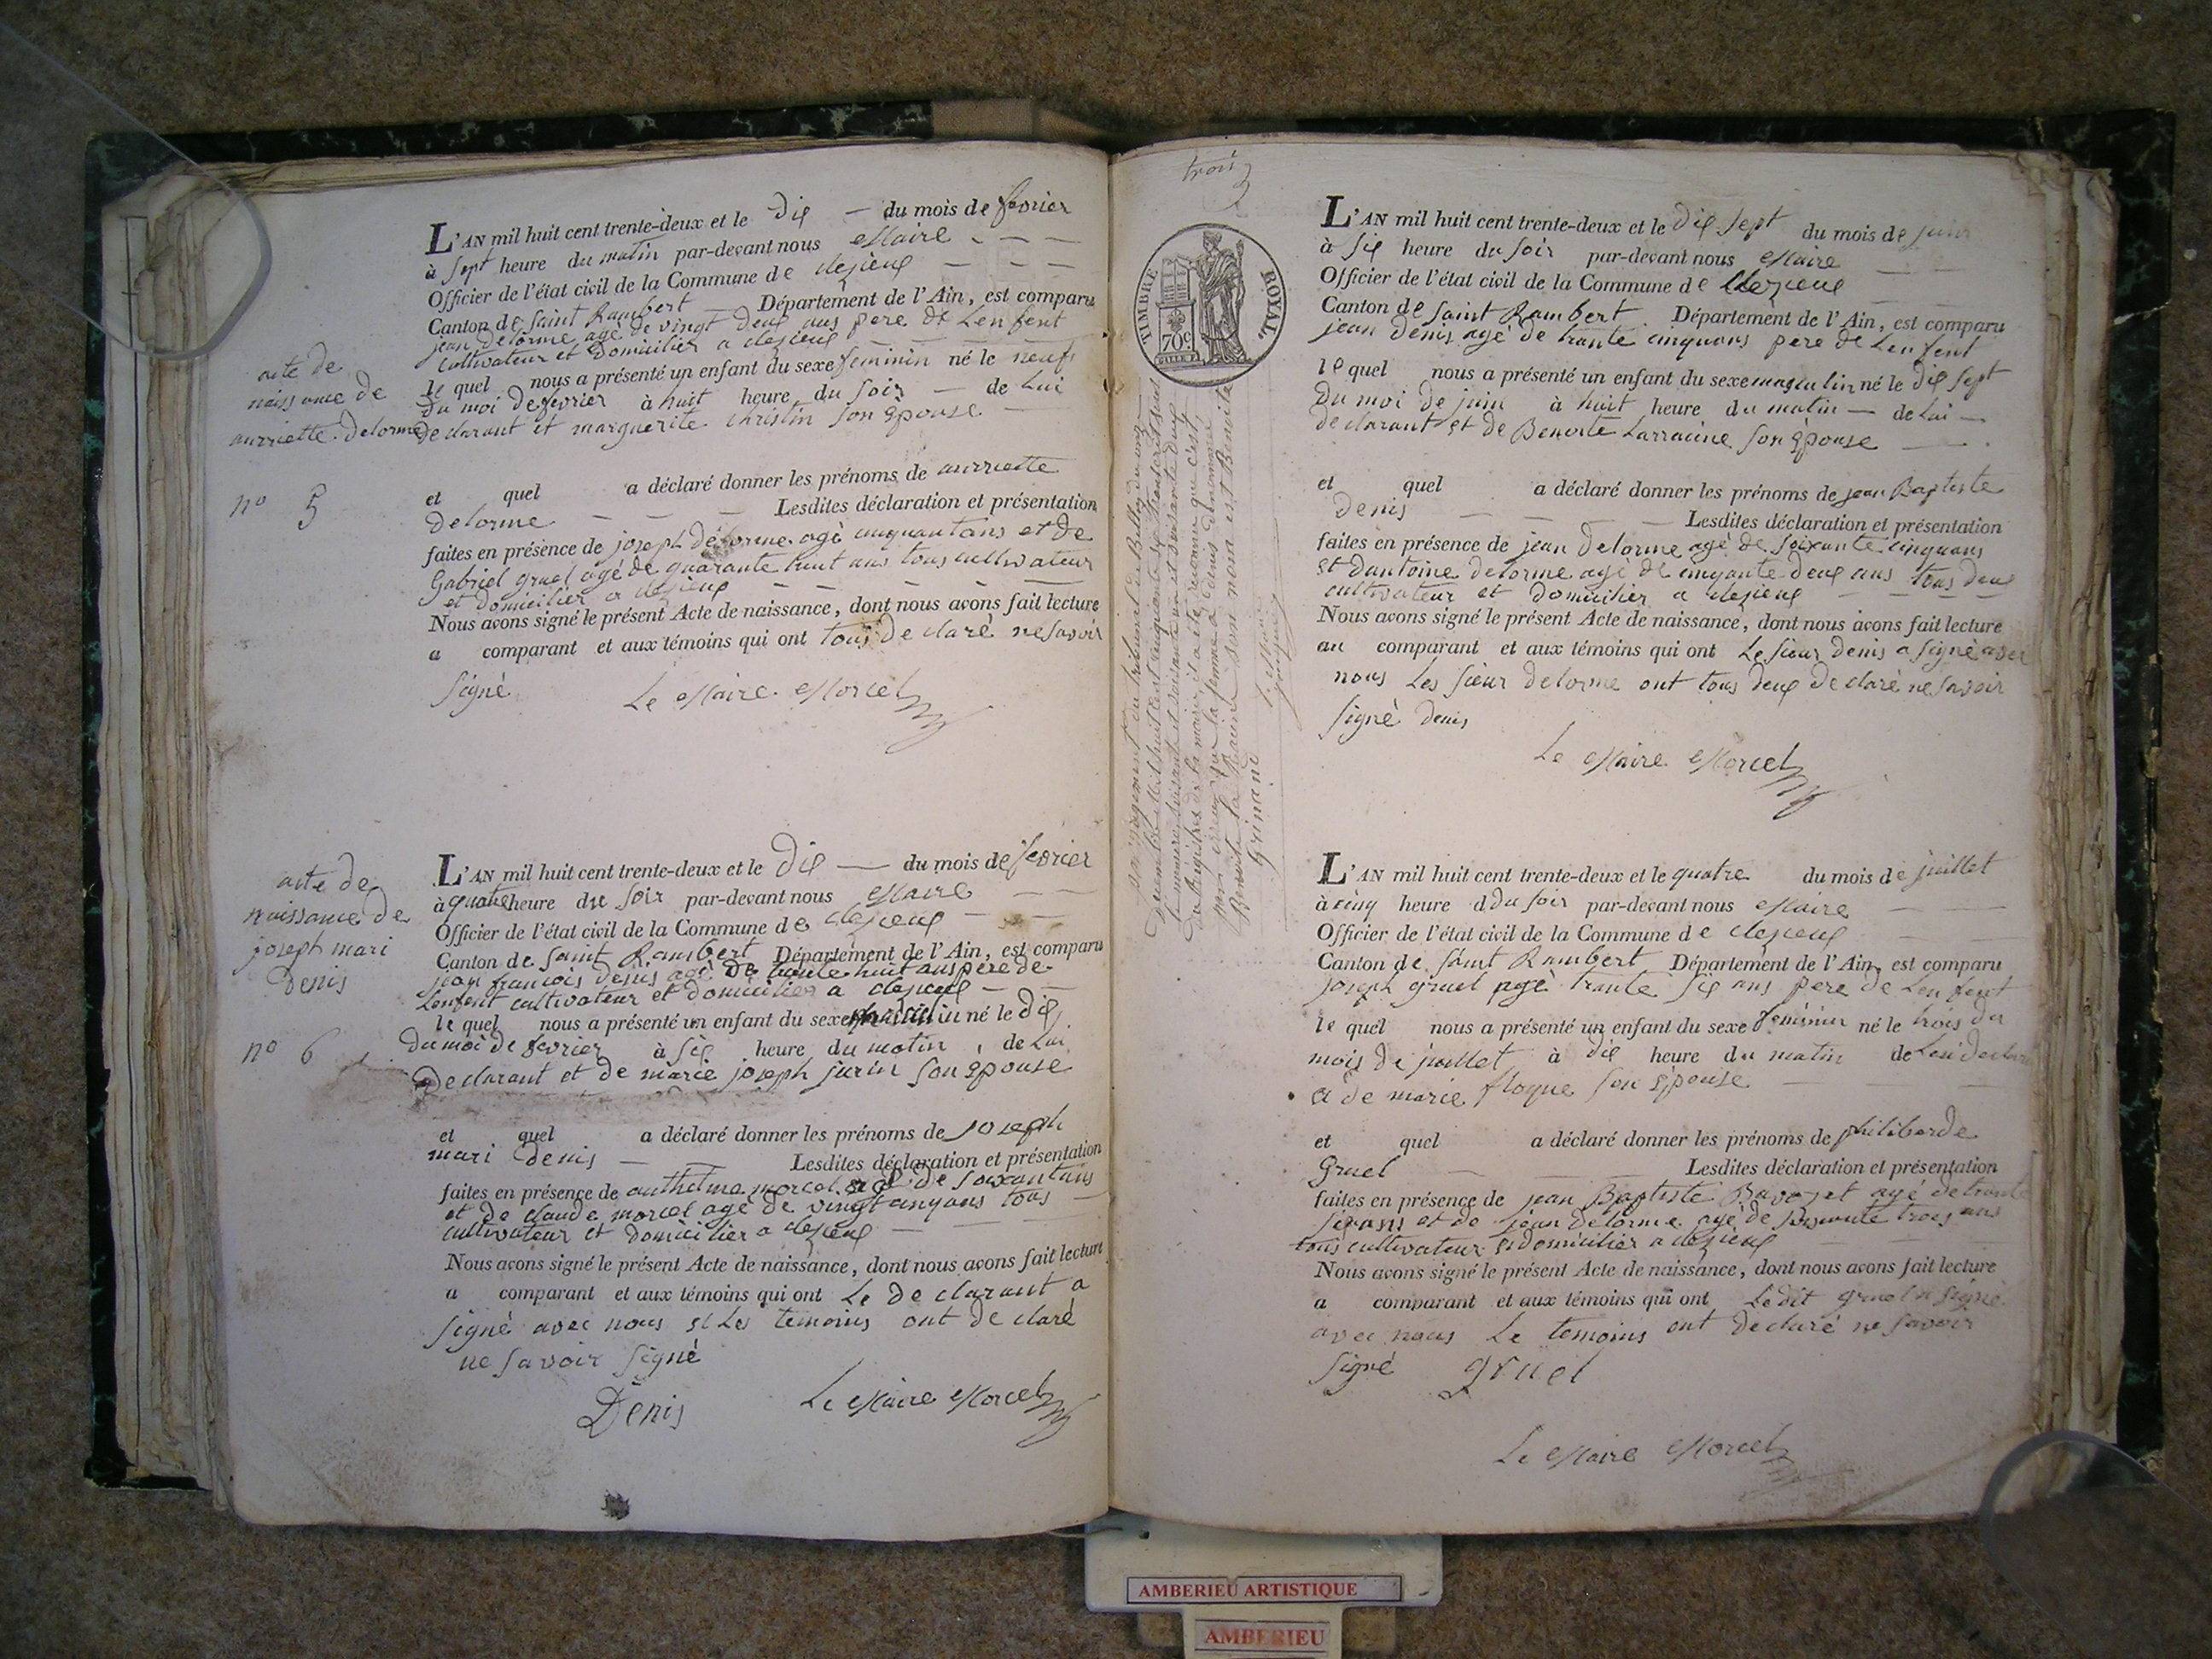 L'AN mil huit cent trente-deux et le Dix du mois de fevrier
à sept heure du matin par-devant nous Maire
Officier de l'état civil de la Commune de clezieux
Canton de Saint Rambert Département de l'Ain, est comparu
jean Delorme agé de vingt deux ans pere de Lenfent
cultivateur et Domicilier a clezieux
acte de
naissance de
aurriette Delorme
le quel nous a présenté un enfant du sexe feminin né le neuf
Du moi De fevrier à huit heure du soir de Lui
Declarant et marguerite christin son epouse
et quel a déclaré donner les prénoms de aurriette
no 5
Delorme Lesdites déclaration et présentation
faites en présence de joseph delorme agé cinquant ans et de
Gabriel gruel agé de quarante huit ans tous cultivateur
et Domicilier a clezieux
Nous avons signé le présent Acte de naissance, dont nous avons fait lecture
a comparant et aux témoins qui ont tous De claré ne savoir
signé
Le Maire Morcel
L'AN mil huit cent trente-deux et le Dix du mois de fevrier
acte de
naissance de
joseph mari
Denis
à quatre heure du soir par-devant nous Maire
Officier de l'état civil de la Commune de clezieux
Canton de Saint Rambert Département de l'Ain, est comparu
jean francois denis agé de trente huit ans pere de
Lenfent cultivateur et domicilier a clezieux
le quel nous a présenté un enfant du sexe né le dix
no 6
du moi de fevrier à six heure du matin, de Lui
Declarant et de marie joseph jurin son épouse
et quel a déclaré donner les prénoms de joseph
mari denis Lesdites déclaration et présentation
faites en présence de anthelme morcel de soixant ans
et de claude morcel agé de vingt cinqans tous
cultivateur et domicilier a clezieux
Nous avons signé le présent Acte de naissance, dont nous avons fait lecture
a comparant et aux témoins qui ont Le De clarant a
signé avec nous et Les temoins ont de claré
ne savoir signé
Denis
Le Maire Morcel
trois
TIMBRE ROYAL
70c
par jugement du tribunal de Belley du onze
Benoite la Raine son nom est Benoite
Grinand
L'AN mil huit cent trente-deux et le Dix sept du mois de juin
à six heure du soir par-devant nous Maire
Officier de l'état civil de la Commune de Clezieux
Canton de saint Rambert Département de l'Ain, est comparu
jean denis agé de trante cinquans pere de Lenfent
le quel nous a présenté un enfant du sexe masculin né le dix sept
Du moi de juin à huit heure du matin de Lui
declarant et de Benoite Larraine son épouse
et quel a déclaré donner les prénoms de jean Baptiste
denis Lesdites déclaration et présentation
faites en présence de jean Delorme agé de soixante cinquans
et dantoine delorme agé de cinqante deux ans tous deux
cultivateur et domicilier a clezieux
Nous avons signé le présent Acte de naissance, dont nous avons fait lecture
au comparant et aux témoins qui ont Le sieur denis a signé avec
nous Les sieur delorme ont tous deux declaré ne savoir
signé denis
Le Maire Morcel
L'AN mil huit cent trente-deux et le quatre du mois de juillet
à cinq heure d du soir par-devant nous Maire
Officier de l'état civil de la Commune de clezieux
Canton de saint Rambert Département de l'Ain, est comparu
joseph gruel agé trante six ans pere de Lenfent
le quel nous a présenté un enfant du sexe feminin né le trois du
mois de juillet à dix heure du matin de Lui
et de marie floque son épouse
et quel a déclaré donner les prénoms de philiberde
Gruel Lesdites déclaration et présentation
faites en présence de jean Baptiste agé de trante
sixans et de jean delorme agé de soixante trois ans
tous cultivateur et domicilier a clezieux
Nous avons signé le présent Acte de naissance, dont nous avons fait lecture
a comparant et aux témoins qui ont Le dit gruel a signé
avec nous Le temoins ont declaré ne savoir
signé gruel
Le Maire Morcel
AMBERIEU ARTISTIQUE
AMBERIEU